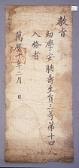 教旨
幼學安聘壽生員三等第十四人
入格者
萬曆八年二月　日